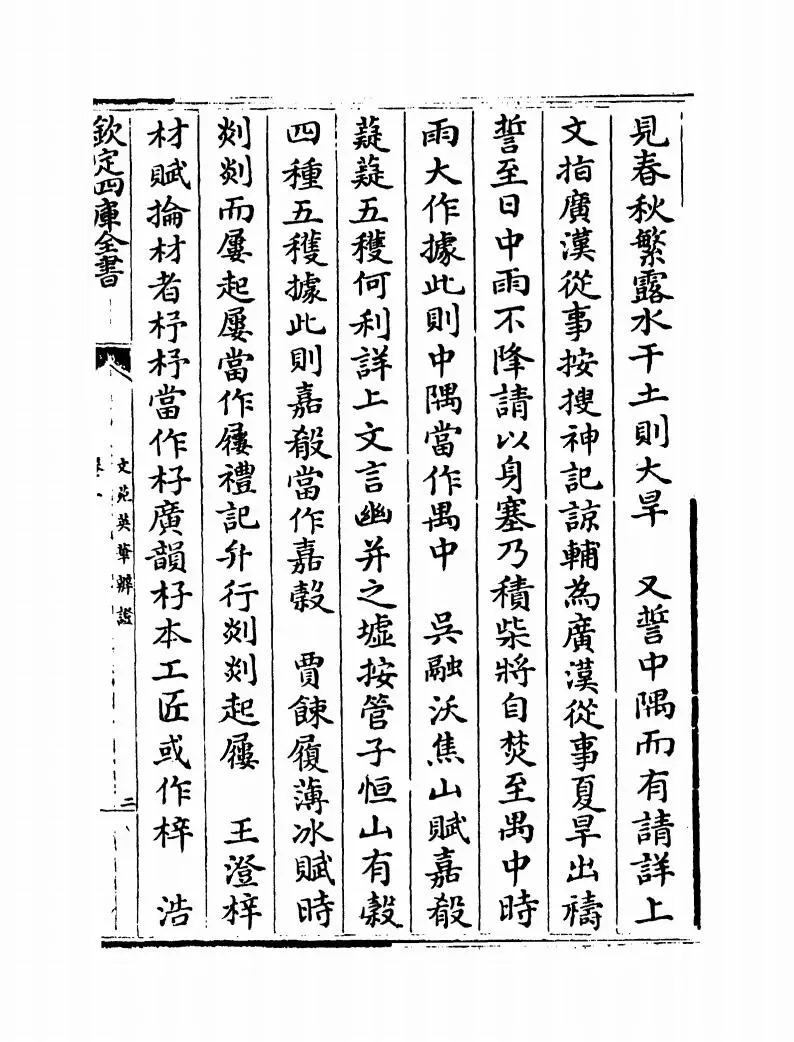 見春秋繁露水干土則大旱　又誓中隅而有請詳上
文指廣漢從事按搜神記諒輔為廣漢從事夏旱出禱
誓至日中雨不降請以身塞乃積柴將自焚至禺中時
雨大作據此則中隅當作禺中　吳融沃焦山賦嘉殽
薿薿五穫何利詳上文言幽并之墟按管子恒山有穀
四種五穫據此則嘉殽當作嘉穀　賈餗履薄冰賦時
剡剡而屢起屢當作屨禮記弁行剡剡起屨　王澄梓
材賦掄材者杼杼當作杍廣韻杍本工匠或作梓　浩
欽定四庫全書
文苑英華辨證
二